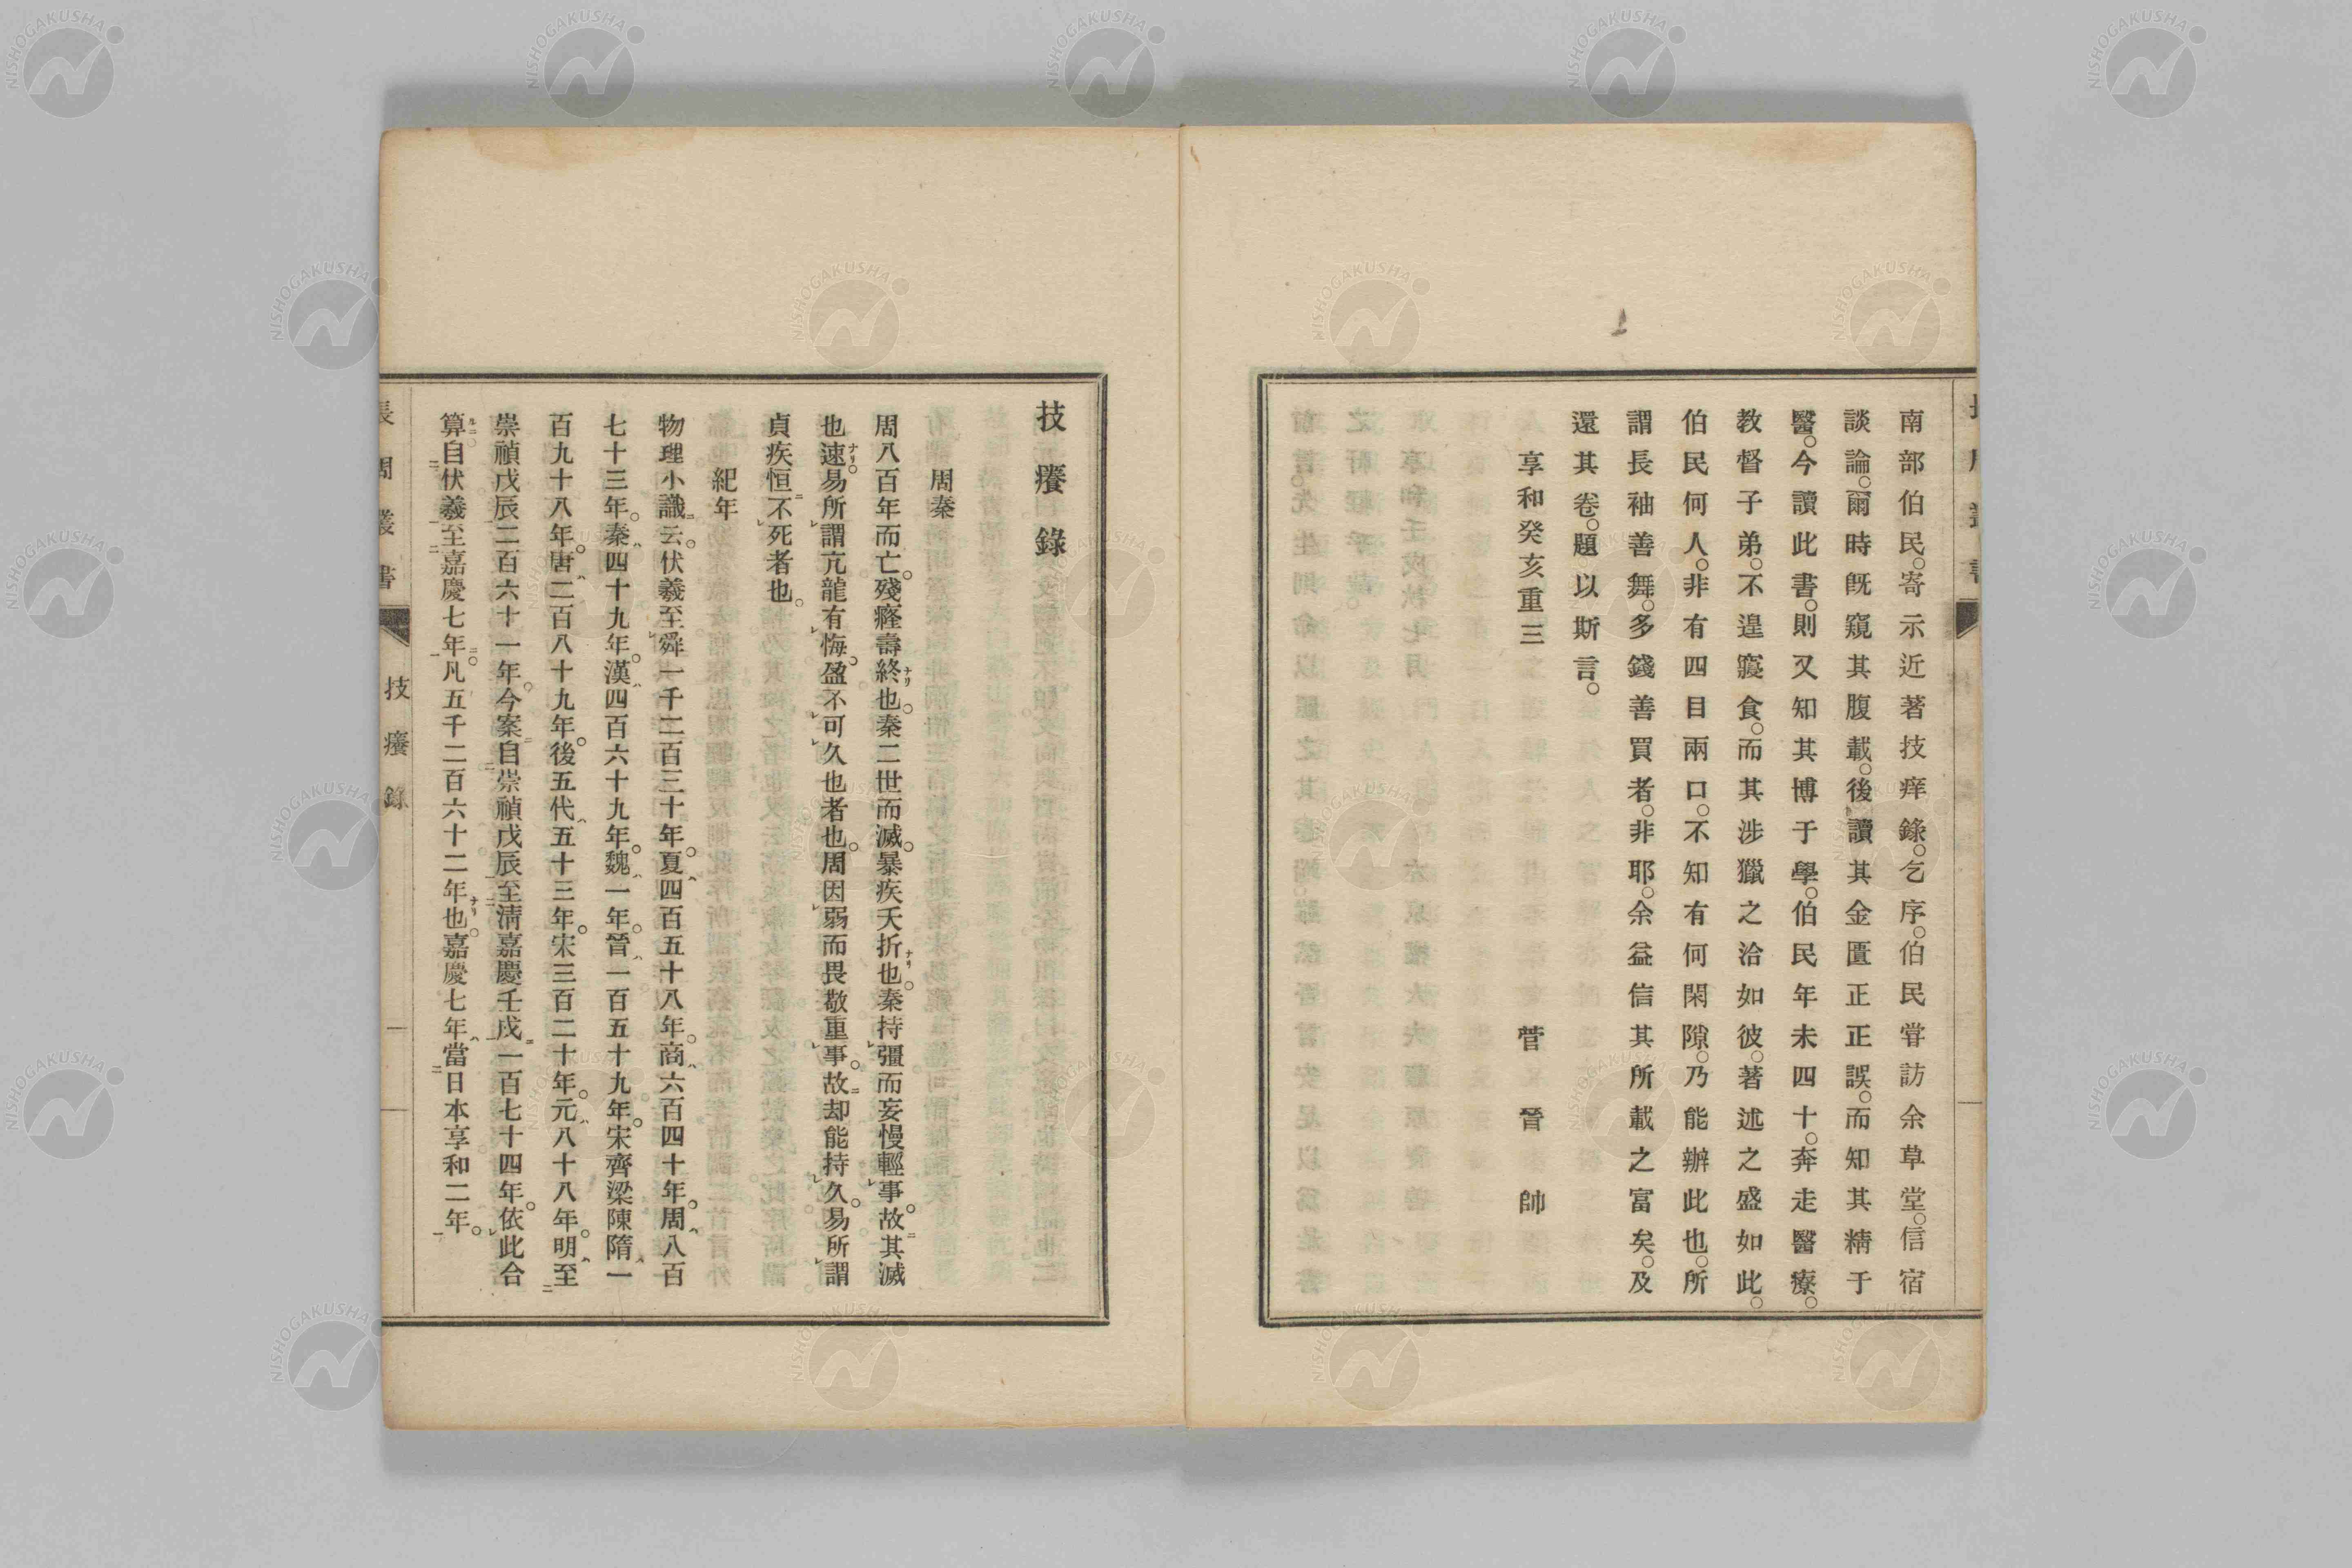 南部伯民。寄示近著技痒錄。乞序。伯民甞訪余草堂。信宿
談論。爾時旣窺其腹載。後讀其金匱正正誤。而知其精于
醫。今讀此書。則又知其博于學。伯民年未四十。奔走醫療。
教督子弟。不遑寢食。而其涉獵之洽如彼。著述之盛如此。
伯民何人。非有四目兩口。不知有何閑隙。乃能辦此也。所
謂長袖善舞。多錢善買者。非耶。余益信其所載之富矣。及
還其卷。題以斯言。
享和癸亥重三　菅晉帥
技癢錄
周秦
周八百年而亡。殘癃壽終ナリ也。秦二世而滅。暴疾夭折ナリ也。秦持レ彊而妄慢輕レ事。故ニ其滅
也速ナリ。易所レ謂亢龍有レ悔。盈不レ可レ久也者也。周因レ弱而畏敬重レ事。故ニ却能持レ久。易所レ謂
貞疾恒ニ不レ死者也。
紀年
物理小識ニ云。伏羲至レ舜一千二百三十年。夏ハ四百五十八年。商ハ六百四十年。周ハ八百
七十三年。秦ハ四十九年。漢ハ四百六十九年。魏ハ一年。晉ハ一百五十九年。宋齊梁陳隋ハ一
百九十八年。唐ハ二百八十九年。後五代ハ五十三年。宋三百二十年。元ハ八十八年。明ハ至二
崇禎戊辰一二百六十一年。今案ニ自二崇禎戊辰一至二淸嘉慶壬戌ニ一一百七十四年。依レ此合
算ルニ。自二伏羲一至二嘉慶七年一ニ。凡五千二百六十二年ナリ也。嘉慶七年ハ當二日本享和二年一。
長周叢書
技癢錄
一
NISHOGAKUSHA